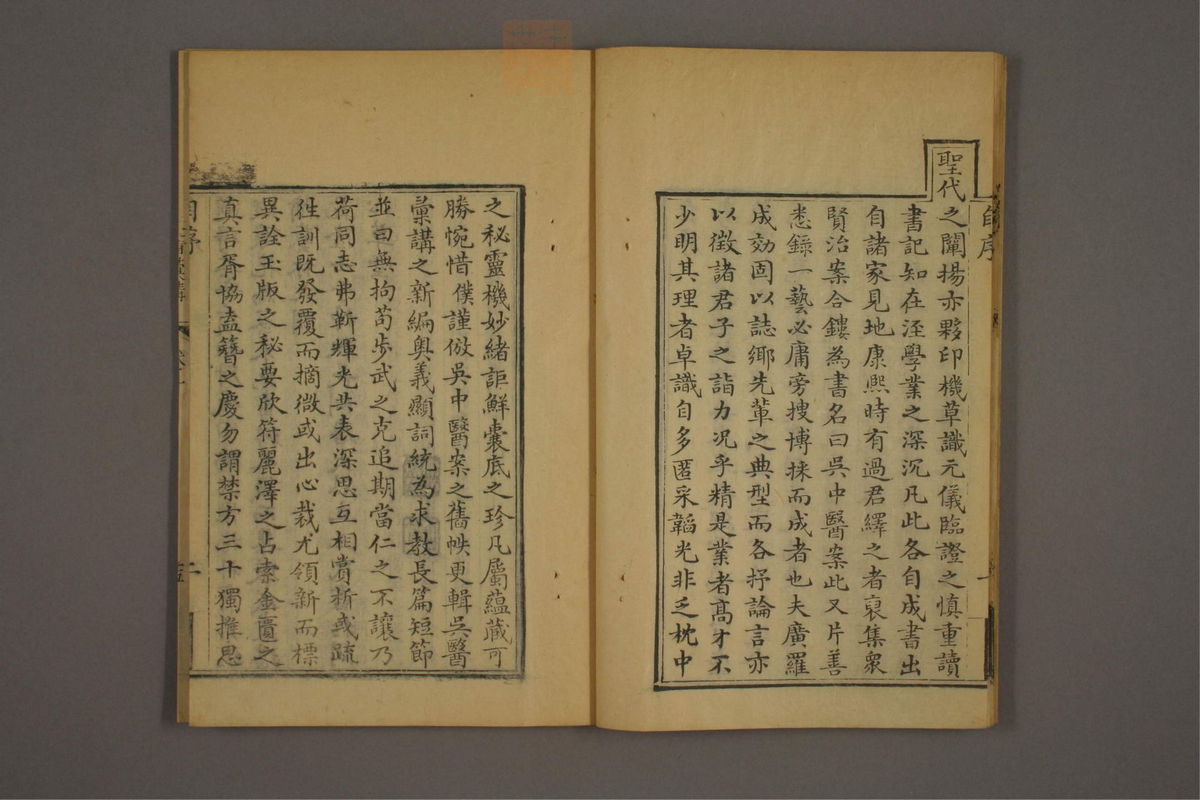 聖代之闡揚亦夥印機草識元儀臨證之慎重讀
書記知在涇學業之深沉凡此各自成書出
自諸家見地康熙時有過君繹之者裒集衆
賢治案合鏤為書名曰吳中醫案此又片善
悉錄一藝必庸旁搜博採而成者也夫廣羅
成効固以誌鄉先輩之典型而各抒論言亦
以徵諸君子之詣力况乎精是業者高才不
少明其理者卓識自多匿采韜光非乏枕中
之秘靈機妙緒詎鮮囊底之珍凡屬蘊藏可
勝惋惜僕謹倣吳中醫案之舊帙更輯吳醫
彙講之新編奧義顯詞統為求教長篇短節
並曰無拘苟步武之克追期當仁之不讓乃
荷同志弗靳輝光共表深思互相賞析或疏
徃訓既發覆而摘微或出心裁尤領新而標
異詮玉版之秘要欣符麗澤之占索金匱之
真言胥協盍簪之慶勿謂禁方三十獨推思